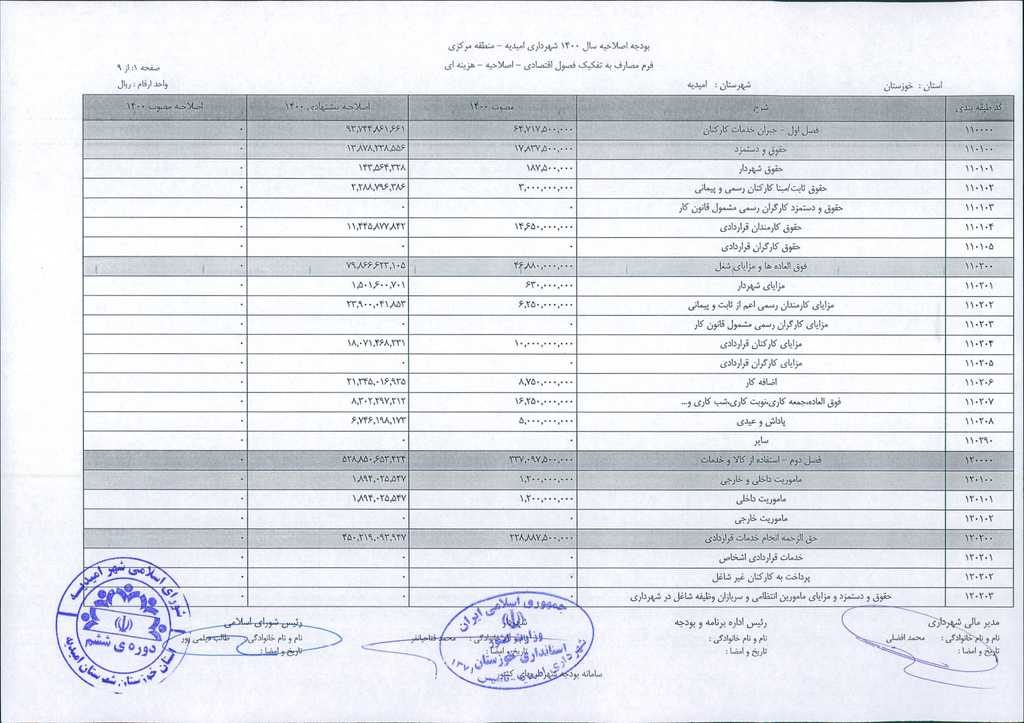 بودجه اصلاحیه سال ۱۴۰۰ شهرداری امیدیه - منطقه مرکزی
فرم مصارف به تفکیک فصول اقتصادی - اصلاحیه - هزینه ای
صفحه ۱: از ۹
استان : خوزستان شهرستان : امیدیه واحد ارقام : ریال
کد طبقه بندی شرح مصوب ۱۴۰۰ اصلاحیه پیشنهادی ۱۴۰۰ اصلاحیه مصوب ۱۴۰۰
۱۱۰۰۰۰ فصل اول - جبران خدمات کارکنان ۶۴,۷۱۷,۵۰۰,۰۰۰ ۹۳,۷۴۴,۸۶۱,۶۶۱ ۰
۱۱۰۱۰۰ حقوق و دستمزد ۱۷,۸۳۷,۵۰۰,۰۰۰ ۱۳,۸۷۸,۲۳۸,۵۵۶ ۰
۱۱۰۱۰۱ حقوق شهردار ۱۸۷,۵۰۰,۰۰۰ ۱۴۳,۵۶۴,۳۲۸ ۰
۱۱۰۱۰۲ حقوق ثابت/مبنا کارکنان رسمی و پیمانی ۳,۰۰۰,۰۰۰,۰۰۰ ۲,۲۸۸,۷۹۶,۳۸۶ ۰
۱۱۰۱۰۳ حقوق و دستمزد کارگران رسمی مشمول قانون کار ۰ ۰ ۰
۱۱۰۱۰۴ حقوق کارمندان قراردادی ۱۴,۶۵۰,۰۰۰,۰۰۰ ۱۱,۴۴۵,۸۷۷,۸۴۲ ۰
۱۱۰۱۰۵ حقوق کارگران قراردادی ۰ ۰ ۰
۱۱۰۲۰۰ فوق العاده ها و مزایای شغل ۴۶,۸۸۰,۰۰۰,۰۰۰ ۷۹,۸۶۶,۶۲۳,۱۰۵ ۰
۱۱۰۲۰۱ مزایای شهردار ۶۳۰,۰۰۰,۰۰۰ ۱,۵۰۱,۶۰۰,۷۰۱ ۰
۱۱۰۲۰۲ مزایای کارمندان رسمی اعم از ثابت و پیمانی ۶,۲۵۰,۰۰۰,۰۰۰ ۲۳,۹۰۰,۰۴۱,۸۵۳ ۰
۱۱۰۲۰۳ مزایای کارگران رسمی مشمول قانون کار ۰ ۰ ۰
۱۱۰۲۰۴ مزایای کارکنان قراردادی ۱۰,۰۰۰,۰۰۰,۰۰۰ ۱۸,۰۷۱,۴۶۸,۲۳۱ ۰
۱۱۰۲۰۵ مزایای کارگران قراردادی ۰ ۰ ۰
۱۱۰۲۰۶ اضافه کار ۸,۷۵۰,۰۰۰,۰۰۰ ۲۱,۳۴۵,۰۱۶,۹۳۵ ۰
۱۱۰۲۰۷ فوق العاده،جمعه کاری،نوبت کاری،شب کاری و... ۱۶,۲۵۰,۰۰۰,۰۰۰ ۸,۳۰۲,۲۹۷,۲۱۲ ۰
۱۱۰۲۰۸ پاداش و عیدی ۵,۰۰۰,۰۰۰,۰۰۰ ۶,۷۴۶,۱۹۸,۱۷۳ ۰
۱۱۰۲۹۰ سایر ۰ ۰ ۰
۱۲۰۰۰۰ فصل دوم - استفاده از کالا و خدمات ۳۳۷,۰۹۷,۵۰۰,۰۰۰ ۵۳۸,۸۵۰,۶۵۳,۴۲۴ ۰
۱۲۰۱۰۰ ماموریت داخلی و خارجی ۱,۲۰۰,۰۰۰,۰۰۰ ۱,۸۹۴,۰۲۵,۵۴۷ ۰
۱۲۰۱۰۱ ماموریت داخلی ۱,۲۰۰,۰۰۰,۰۰۰ ۱,۸۹۴,۰۲۵,۵۴۷ ۰
۱۲۰۱۰۲ ماموریت خارجی ۰ ۰ ۰
۱۲۰۲۰۰ حق الزحمه انجام خدمات قراردادی ۲۲۸,۸۸۷,۵۰۰,۰۰۰ ۴۵۰,۲۱۹,۰۹۳,۹۲۷ ۰
۱۲۰۲۰۱ خدمات قراردادی اشخاص ۰ ۰ ۰
۱۲۰۲۰۲ پرداخت به کارکنان غیر شاغل ۰ ۰ ۰
۱۲۰۲۰۳ حقوق و دستمزد و مزایای مامورین انتظامی و سربازان وظیفه شاغل در شهرداری ۰ ۰ ۰
مدیر مالی شهرداری رئیس اداره برنامه و بودجه شهردار رئیس شورای اسلامی
نام و نام خانوادگی : محمد افضلی نام و نام خانوادگی : نام و نام خانوادگی : محمد نام و نام خانوادگی : طالب دیلمی پور
تاریخ و امضا : تاریخ و امضا : تاریخ و امضا : تاریخ و امضا :
سامانه بودجه شهرداریهای کشور
جمهوری اسلامی ایران
وزارت کشور
استانداری خوزستان
شورای اسلامی شهر امیدیه
دوره ی ششم
استان خوزستان شهرستان امیدیه